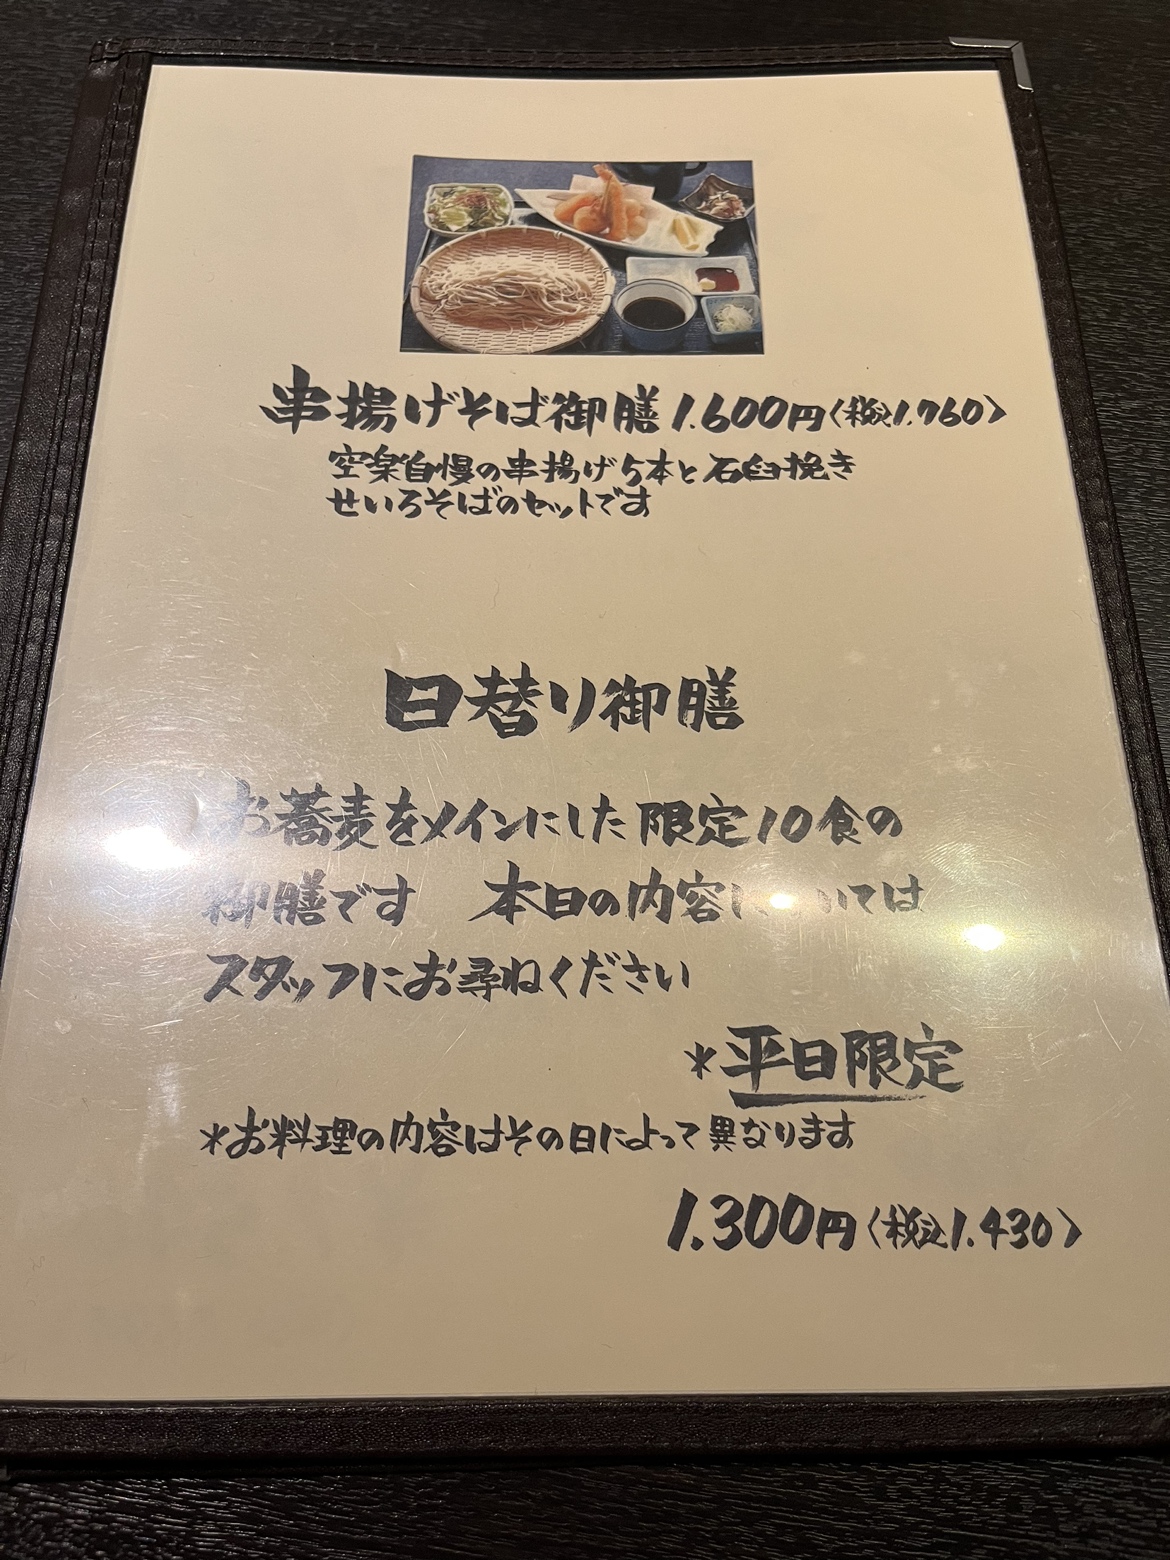 串揚げそば御膳 1.600円〈税込1.760〉
空楽自慢の串揚げ5本と石臼挽き
せいろそばのセットです
日替り御膳
お蕎麦をメインにした限定10食の
御膳です 本日の内容については
スタッフにお尋ねください
*平日限定
*お料理の内容はその日によって異なります
1.300円〈税込1.430〉